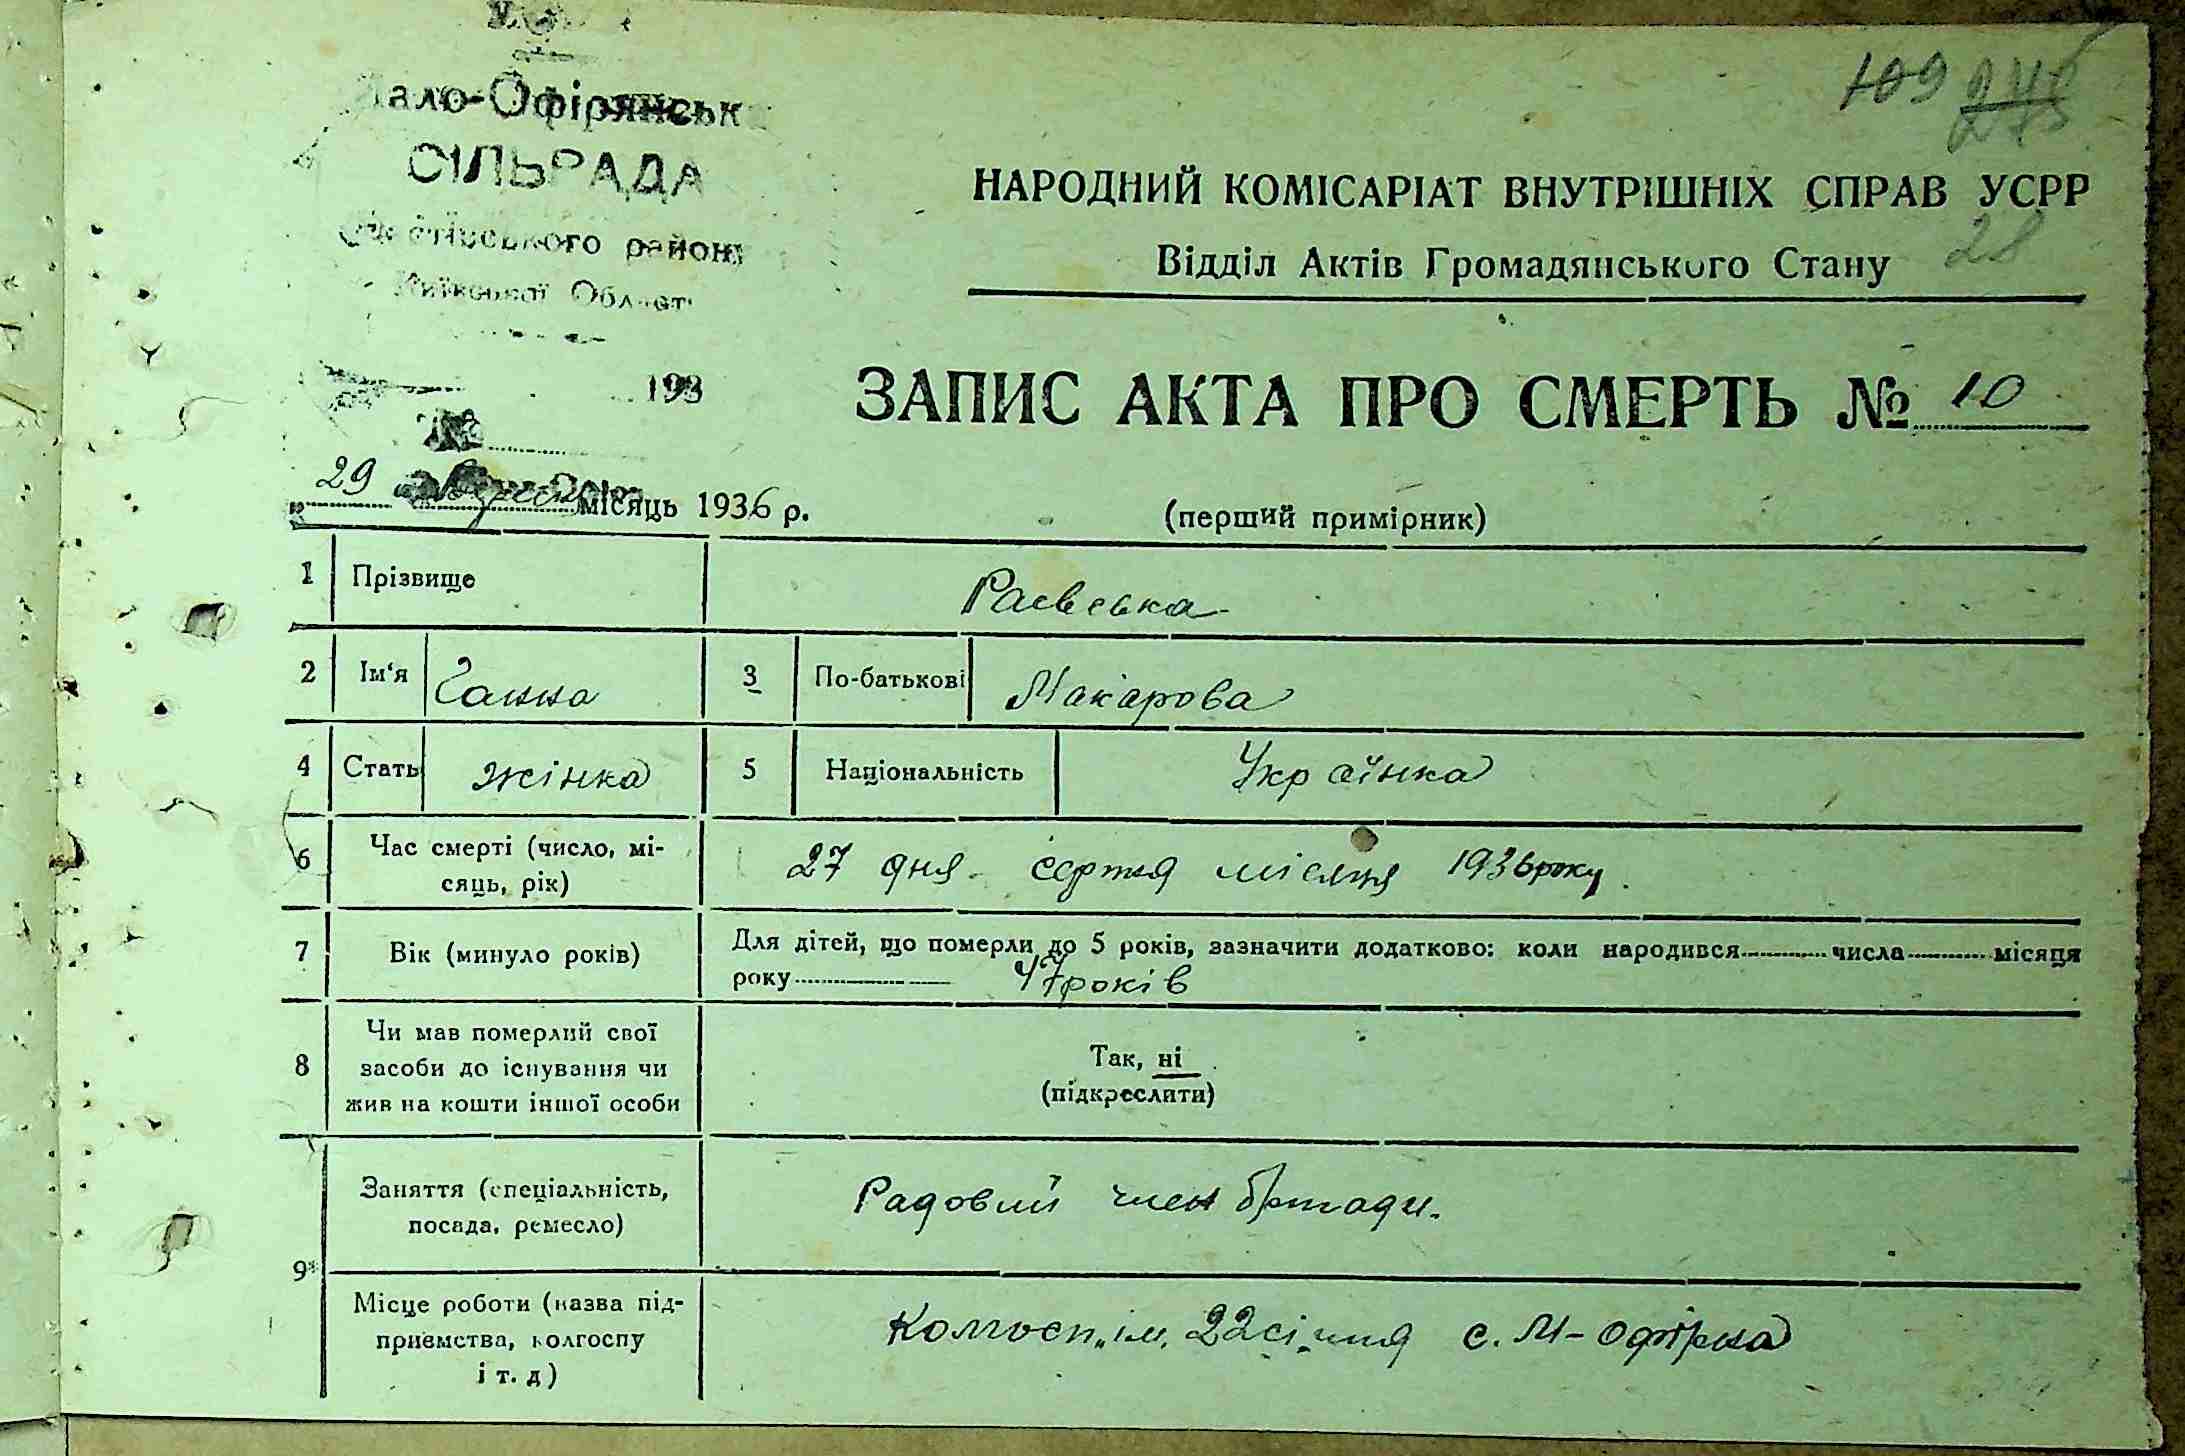 Мало-Офірянська
СІЛЬРАДА
району
Київської Області
193
109 275
НАРОДНИЙ КОМІСАРІАТ ВНУТРІШНІХ СПРАВ УСРР
28
Відділ Актів Громадянського Стану
ЗАПИС АКТА ПРО СМЕРТЬ № 10
„ 29 місяць 1936 р.
(перший примірник)
1 Прізвище Раєвська
2 Ім‘я Ганна 3 По-батькові Макарова
4 Стать жінка 5 Національність Українка
6 Час смерті (число, мі-
сяць, рік) 27 дня серпня місяця 1936 року.
7 Вік (минуло років) Для дітей, що померли до 5 років, зазначити додатково: коли народився числа місяця
року 47 років
8 Чи мав померлий свої
засоби до існування чи
жив на кошти іншої особи
Так, ні
(підкреслити)
9* Заняття (спеціальність,
посада, ремесло) Радовий член бригади.
Місце роботи (назва під-
приємства, колгоспу
і т. д) Колгосп „ім. 22 січня с. М-Офірна